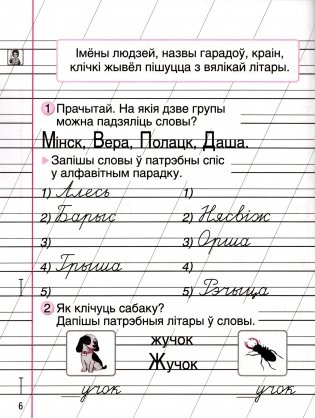 Імёны людзей, назвы гарадоў, краін,
клічкі жывёл пішуцца з вялікай літары.
1 Прачытай. На якія дзве групы
можна падзяліць словы?
Мінск, Вера, Полацк, Даша.
Запішы словы ў патрэбны спіс
у алфавітным парадку.
1) Алесь 1)
2) Барыс 2) Нясвіж
3) 3) Орша
4) Грыша 4)
5) 5) Рэчыца
2 Як клічуць сабаку?
Дапішы патрэбныя літары ў словы.
жучок
Жучок
_учок _учок
6